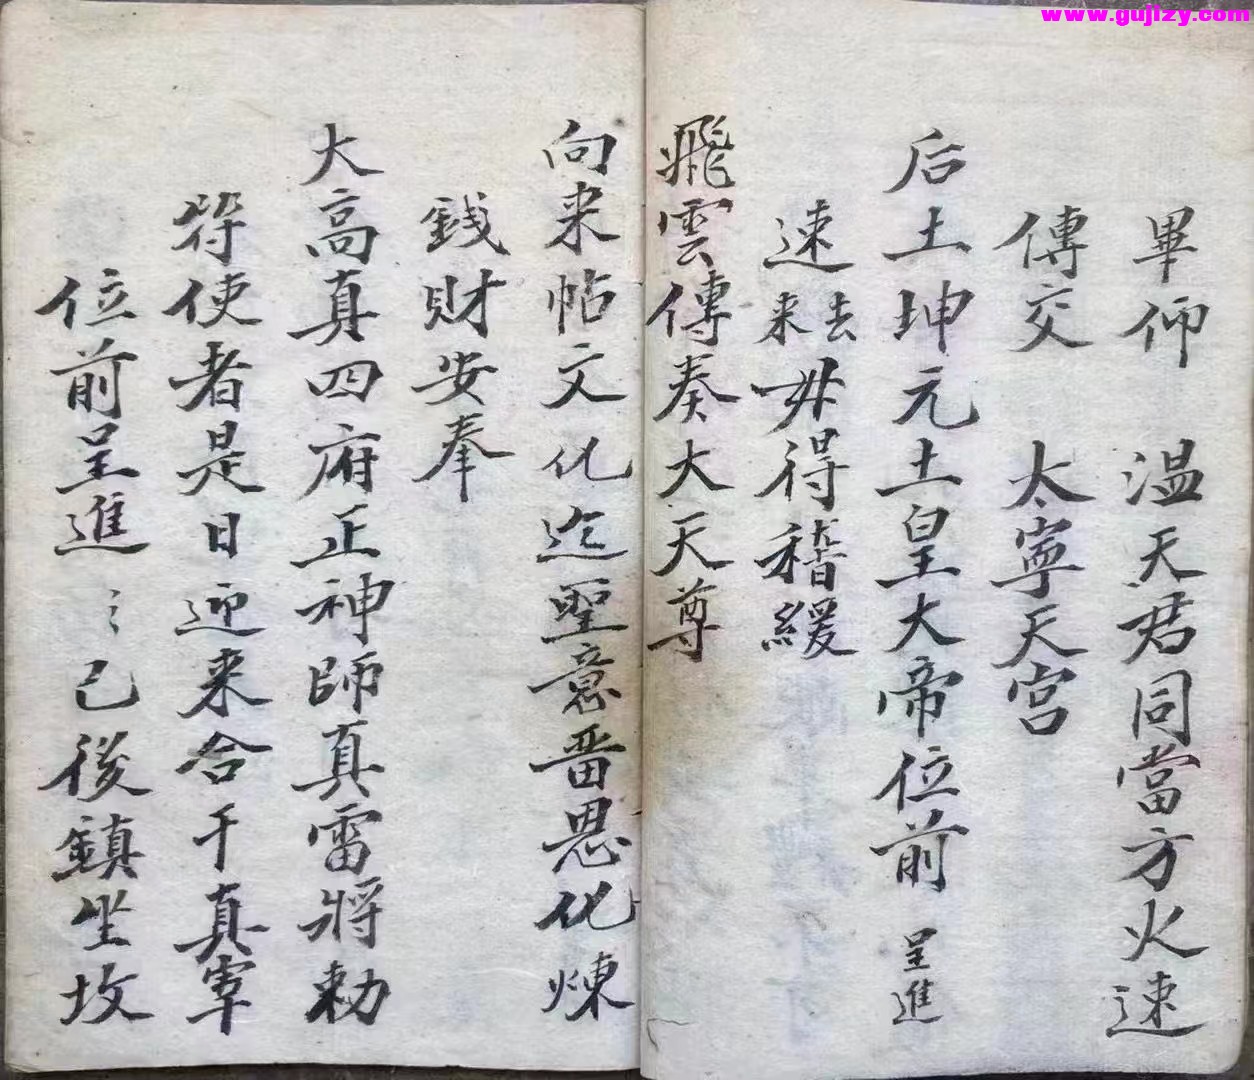 www.gujizy.com
畢仰 温天君同當方火速
傳交 太寧天宮
后土坤元土皇大帝位前 呈進
速去来毋得稽緩
飛雲傳奏大天尊
向来帖文化迄聖意啬恩化煉
錢財安奉
大高真四府正神師真雷將勅
符使者是日迎来合千真宰
位前呈進〻已後鎮坐坟